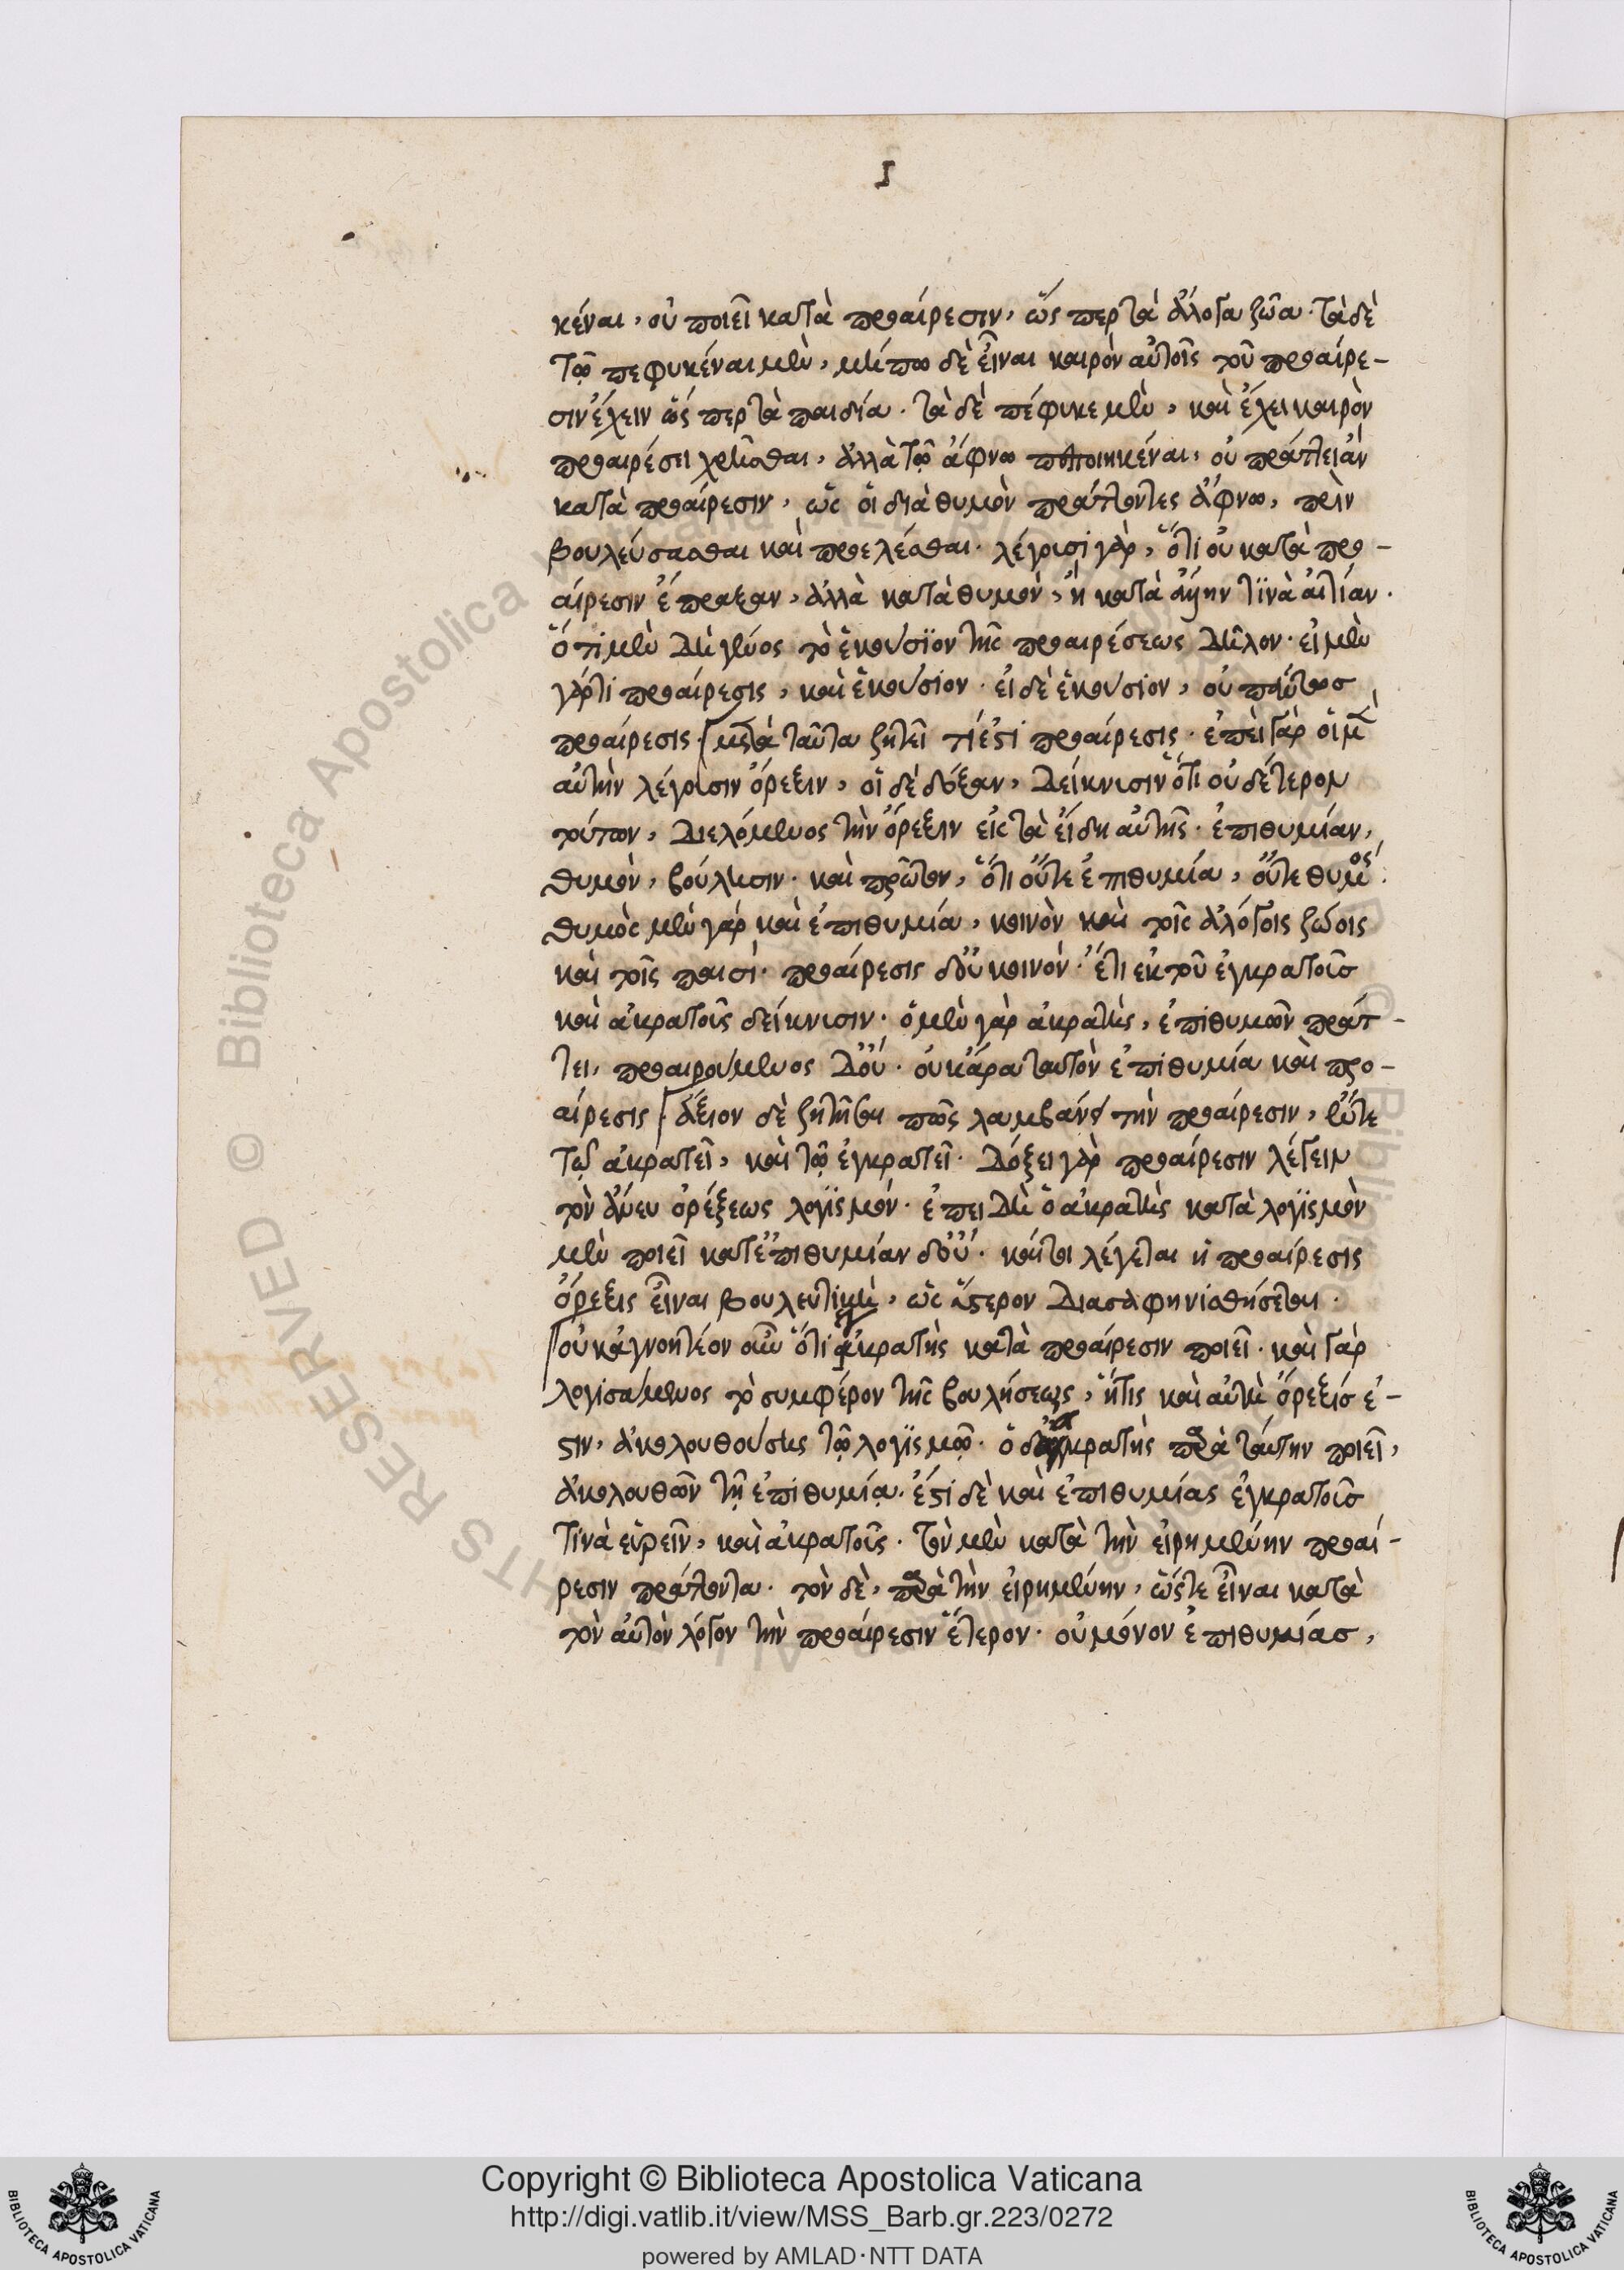 κέναι, οὐ ποιεῖ κατὰ προαίρεσιν, ὥς περ τὰ ἄλογα ζῶα. τὰ δὲ
τῷ πεφυκέναι μὲν, μήπω δὲ εἶναι καιρὸν αὐτοῖς τοῦ προαίρε-
σιν ἔχειν ὥς περ τὰ παιδία. τὰ δὲ πέφυκε μὲν, καὶ ἔχει καιρὸν
προαιρέσει χρῆσθαι, ἀλλὰ τῷ ἄφνω πεποιηκέναι, οὐ πράττει ἂν
κατὰ προαίρεσιν, ὡς οἱ διὰ θυμὸν πράττοντες ἄφνω, πρὶν
βουλεύσασθαι καὶ προελέσθαι. λέγουσι γὰρ, ὅτι οὐ κατὰ προ-
αίρεσιν ἔπραξαν, ἀλλὰ κατὰ θυμὸν, ἢ κατὰ τινὰ αἰτίαν.
ὅτι μὲν δὴ γένος τὸ ἑκούσιον τῆς προαιρέσεως δῆλον. εἰ μὲν
γάρ τι προαίρεσις, καὶ ἑκούσιον. εἰ δὲ ἑκούσιον, οὐ πάντως
προαίρεσις. μετὰ ταῦτα ζητεῖ τί ἐστι προαίρεσις. ἐπεὶ γὰρ οἱ μὲν
αὐτὴν λέγουσιν ὄρεξιν, οἱ δὲ δόξαν, δείκνυσιν ὅτι οὐδέτερον
τούτων, διελόμενος τὴν ὄρεξιν εἰς τὰ εἴδη αὐτῆς. ἐπιθυμίαν,
θυμὸν, βούλησιν. καὶ πρῶτον, ὅτι οὔτε ἐπιθυμία, οὔτε θυμός.
θυμὸς μὲν γάρ καὶ ἐπιθυμία, κοινὸν καὶ τοῖς ἀλόγοις ζώοις
καὶ τοῖς παισί. προαίρεσις δ' οὐ κοινόν. ἔτι ἐκ τοῦ ἐγκρατοῦς
καὶ ἀκρατοῦς δείκνυσιν. ὁ μὲν γὰρ ἀκρατὴς, ἐπιθυμῶν πράτ-
τει, προαιρούμενος δ' οὔ. οὐκ ἄρα ταυτὸν ἐπιθυμία καὶ προ-
αίρεσις ἄξιον δὲ ζητῆσαι πῶς λαμβάνει τὴν προαίρεσιν, ἔν τε
τῷ ἀκρατεῖ, καὶ τῷ ἐγκρατεῖ. δόξει γὰρ προαίρεσιν λέγειν
τὸν ἄνευ ὀρέξεως λογϊσμόν. ἐπειδὴ ὁ ἀκρατὴς κατὰ λογϊσμὸν
μὲν ποιεῖ κατ' ἐπιθυμίαν δ' οὔ. καίτοι λέγεται ἡ προαίρεσις
ὄρεξις εἶναι βουλευτικὴ, ὡς ὕστερον διασαφηνισθήσεται.
οὐκ ἀγνοητέον οὖν ὅτι ἀκρατὴς κατὰ προαίρεσιν ποιεῖ. καὶ γὰρ
λογισάμενος τὸ συμφέρον τῆς βουλήσεως, ἥτις καὶ αὐτὴ ὄρεξίς ἐ-
στιν, ἀκολουθούσης τῷ λογϊσμῷ. ὁ δ' ἀκρατὴς παρὰ ταύτην ποιεῖ,
ἀκολουθῶν τῇ ἐπιθυμίᾳ. ἔστι δὲ καὶ ἐπιθυμίας ἐγκρατοῦς
τινὰ εὑρεῖν, καὶ ἀκρατοῦς. τὸν μὲν κατὰ τὴν εἰρημένην προαί-
ρεσιν πράττοντα. τὸν δὲ, παρὰ τὴν εἰρημένην, ὥστε εἶναι κατὰ
τὸν αὐτὸν λόγον τὴν προαίρεσιν ἕτερον. οὐ μόνον ἐπιθυμίας,
Biblioteca Apostolica Vaticana
Copyright © Biblioteca Apostolica Vaticana
http://digi.vatlib.it/view/MSS_Barb.gr.223/0272
powered by AMLAD·NTT DATA
BIBLIOTECA APOSTOLICA VATICANA
BIBLIOTECA APOSTOLICA VATICANA